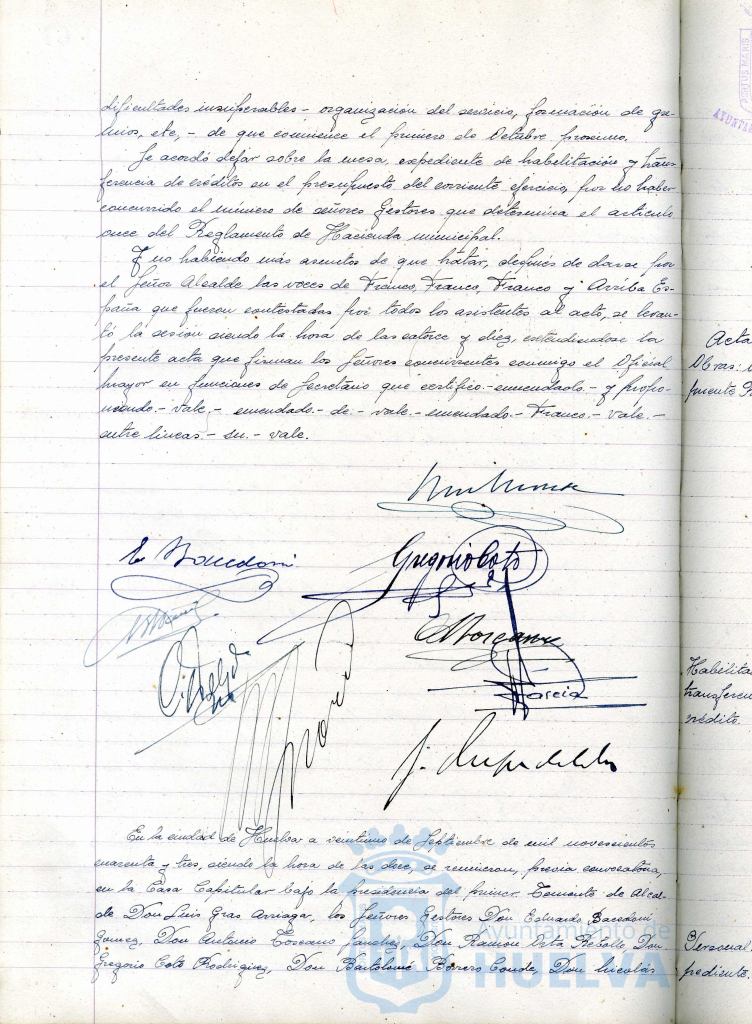 dificultades insuperables - organización del servicio, formación de gre-
mios, etc, - de que comience el primero de Octubre proximo.
Se acordó dejar sobre la mesa, expediente de habilitación y trans-
ferencia de créditos en el presupuesto del corriente ejercicio, por no haber
concurrido el número de señores Gestores que determina el articulo
once del Reglamento de Hacienda municipal.
Y no habiendo más asuntos de que tratar, después de darse por
el Señor Alcalde las voces de Franco, Franco, Franco y Arriba Es-
paña que fueron contestadas por todos los asistentes al acto, se levan-
tó la sesión siendo la hora de las catorce y diez, extendiendose la
presente acta que firman los Señores concurrentes conmigo el Oficial
mayor en funciones de Secretario que certifico.- enmendado.- y propo-
niendo.- vale,- enmendado.- de.- vale.- enmendado.- Franco.- vale.-
entre lineas.- su.- vale.
E. Bacedoni
Gregorio Coto
A. Toscano
Garcia
En la ciudad de Huelva a veintiuno de Septiembre de mil novecientos
cuarenta y tres, siendo la hora de las doce, se reunieron, previa convocatoria,
en la Casa Capitular bajo la presidencia del primer Teniente de Alcal-
de Don Luis Gras Arriaga, los Señores Gestores Don Eduardo Bacedoni
Gomez, Don Antonio Toscano Sanchez, Don Ramon Vita Rebollo Don
Gregorio Coto Rodriguez, Don Bartolomé Borrero Conde, Don Nicolás
Ayuntamiento de
HUELVA
Acta
Obras:
Habilita
transferen
crédito.
Personal
pediente.